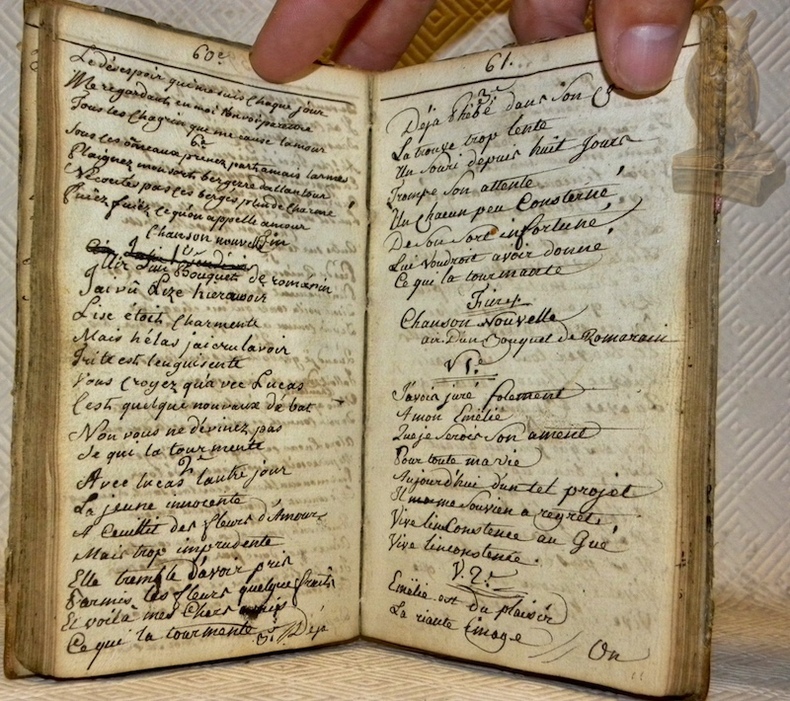 60e
Le désespoir qui me suis Chaque jour
Me regardant en moi
Tous les Chagrin que me cause lamour
6e
Sous les ormeaux prenez part a mais larmes
Plaignez mon sort bergerre dallantour
Necoutés pas les bergés plein de Charme
Fuiéz fuiéz ce qu'on appelle amour
Chanson nouvelle
Air D'un Bouquet de romarin
J'ai vû Lize hier ausoir
Lise étoit Charmente
Mais hélas jai cru lavoir
Trite est lenguisente
Vous Croyez qu'avec Lucas
C'est quelque nouvaux débat
Non vous ne devinez pas
Se qui la tourmente
2e
Avec lucas lautre jour
La jeune innocente
A Ceuillit des fleurs d'Amour
Mais trop imprudente
Elle tremble D'avoir pris
Parmis les fleurs quelque fruits
Et voila mes Chers amis
Ce qui la tourmente 3e // Déja
61.
3e
Déja Phébé dans Son C
La trouve trop lente
Un Souri depuis huit Jours
Trompe Son attente
Un Chacun peu Consterné
De Son Sort infortuné
Lui voudroit avoir donné
Ce qui la tourmante
Fin
Chanson Nouvelle
air D'un Bouquet de Romarain
V 1e
J'avois juré folement
A mon Emélie
Que je Serois Son ament
Pour toute ma vie
Aujourd'hui d'un tel projet
Il me Souvien a regret
Vive linConstence au Gué
Vive linconstence.
V. 2e
Emélie est du plaisir
La riante Image // On